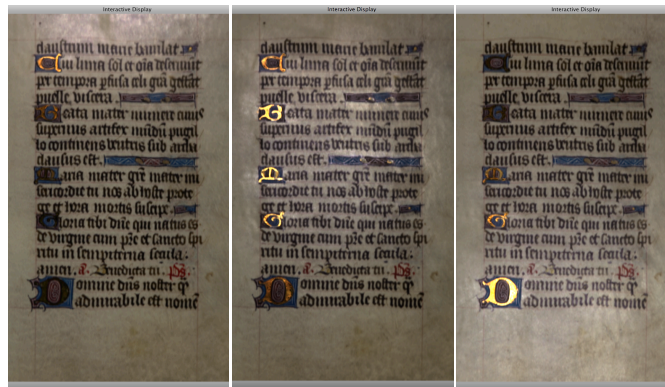 Interactive Display
claustrum marie baiulat
Cui luna sol et oīa deseruiut
per tempora pfusa celi grā gestāt
puelle viscera.
Beata mater munere cuius
supernus artifex mūdū pugil
lo continens ventris sub archa
clausus est.
Maria mater grē mater mi
sericordie tu nos ab hoste prote
ge et hora mortis suscipe.
Gloria tibi dñe qui natus es
de virgine cum pr̃e et sancto spi
ritu in sempiterna secula.
amen. a. Benedicta tu. ps.
Domine dñs noster q̄
admirabile est nomē
Interactive Display
claustrum marie baiulat
Cui luna sol et oīa deseruiut
per tempora pfusa celi grā gestāt
puelle viscera.
Beata mater munere cuius
supernus artifex mūdū pugil
lo continens ventris sub archa
clausus est.
Maria mater grē mater mi
sericordie tu nos ab hoste prote
ge et hora mortis suscipe.
Gloria tibi dñe qui natus es
de virgine cum pr̃e et sancto spi
ritu in sempiterna secula.
amen. a. Benedicta tu. ps.
Domine dñs noster q̄
admirabile est nomē
Interactive Display
claustrum marie baiulat
Cui luna sol et oīa deseruiut
per tempora pfusa celi grā gestāt
puelle viscera.
Beata mater munere cuius
supernus artifex mūdū pugil
lo continens ventris sub archa
clausus est.
Maria mater grē mater mi
sericordie tu nos ab hoste prote
ge et hora mortis suscipe.
Gloria tibi dñe qui natus es
de virgine cum pr̃e et sancto spi
ritu in sempiterna secula.
amen. a. Benedicta tu. ps.
Domine dñs noster q̄
admirabile est nomē